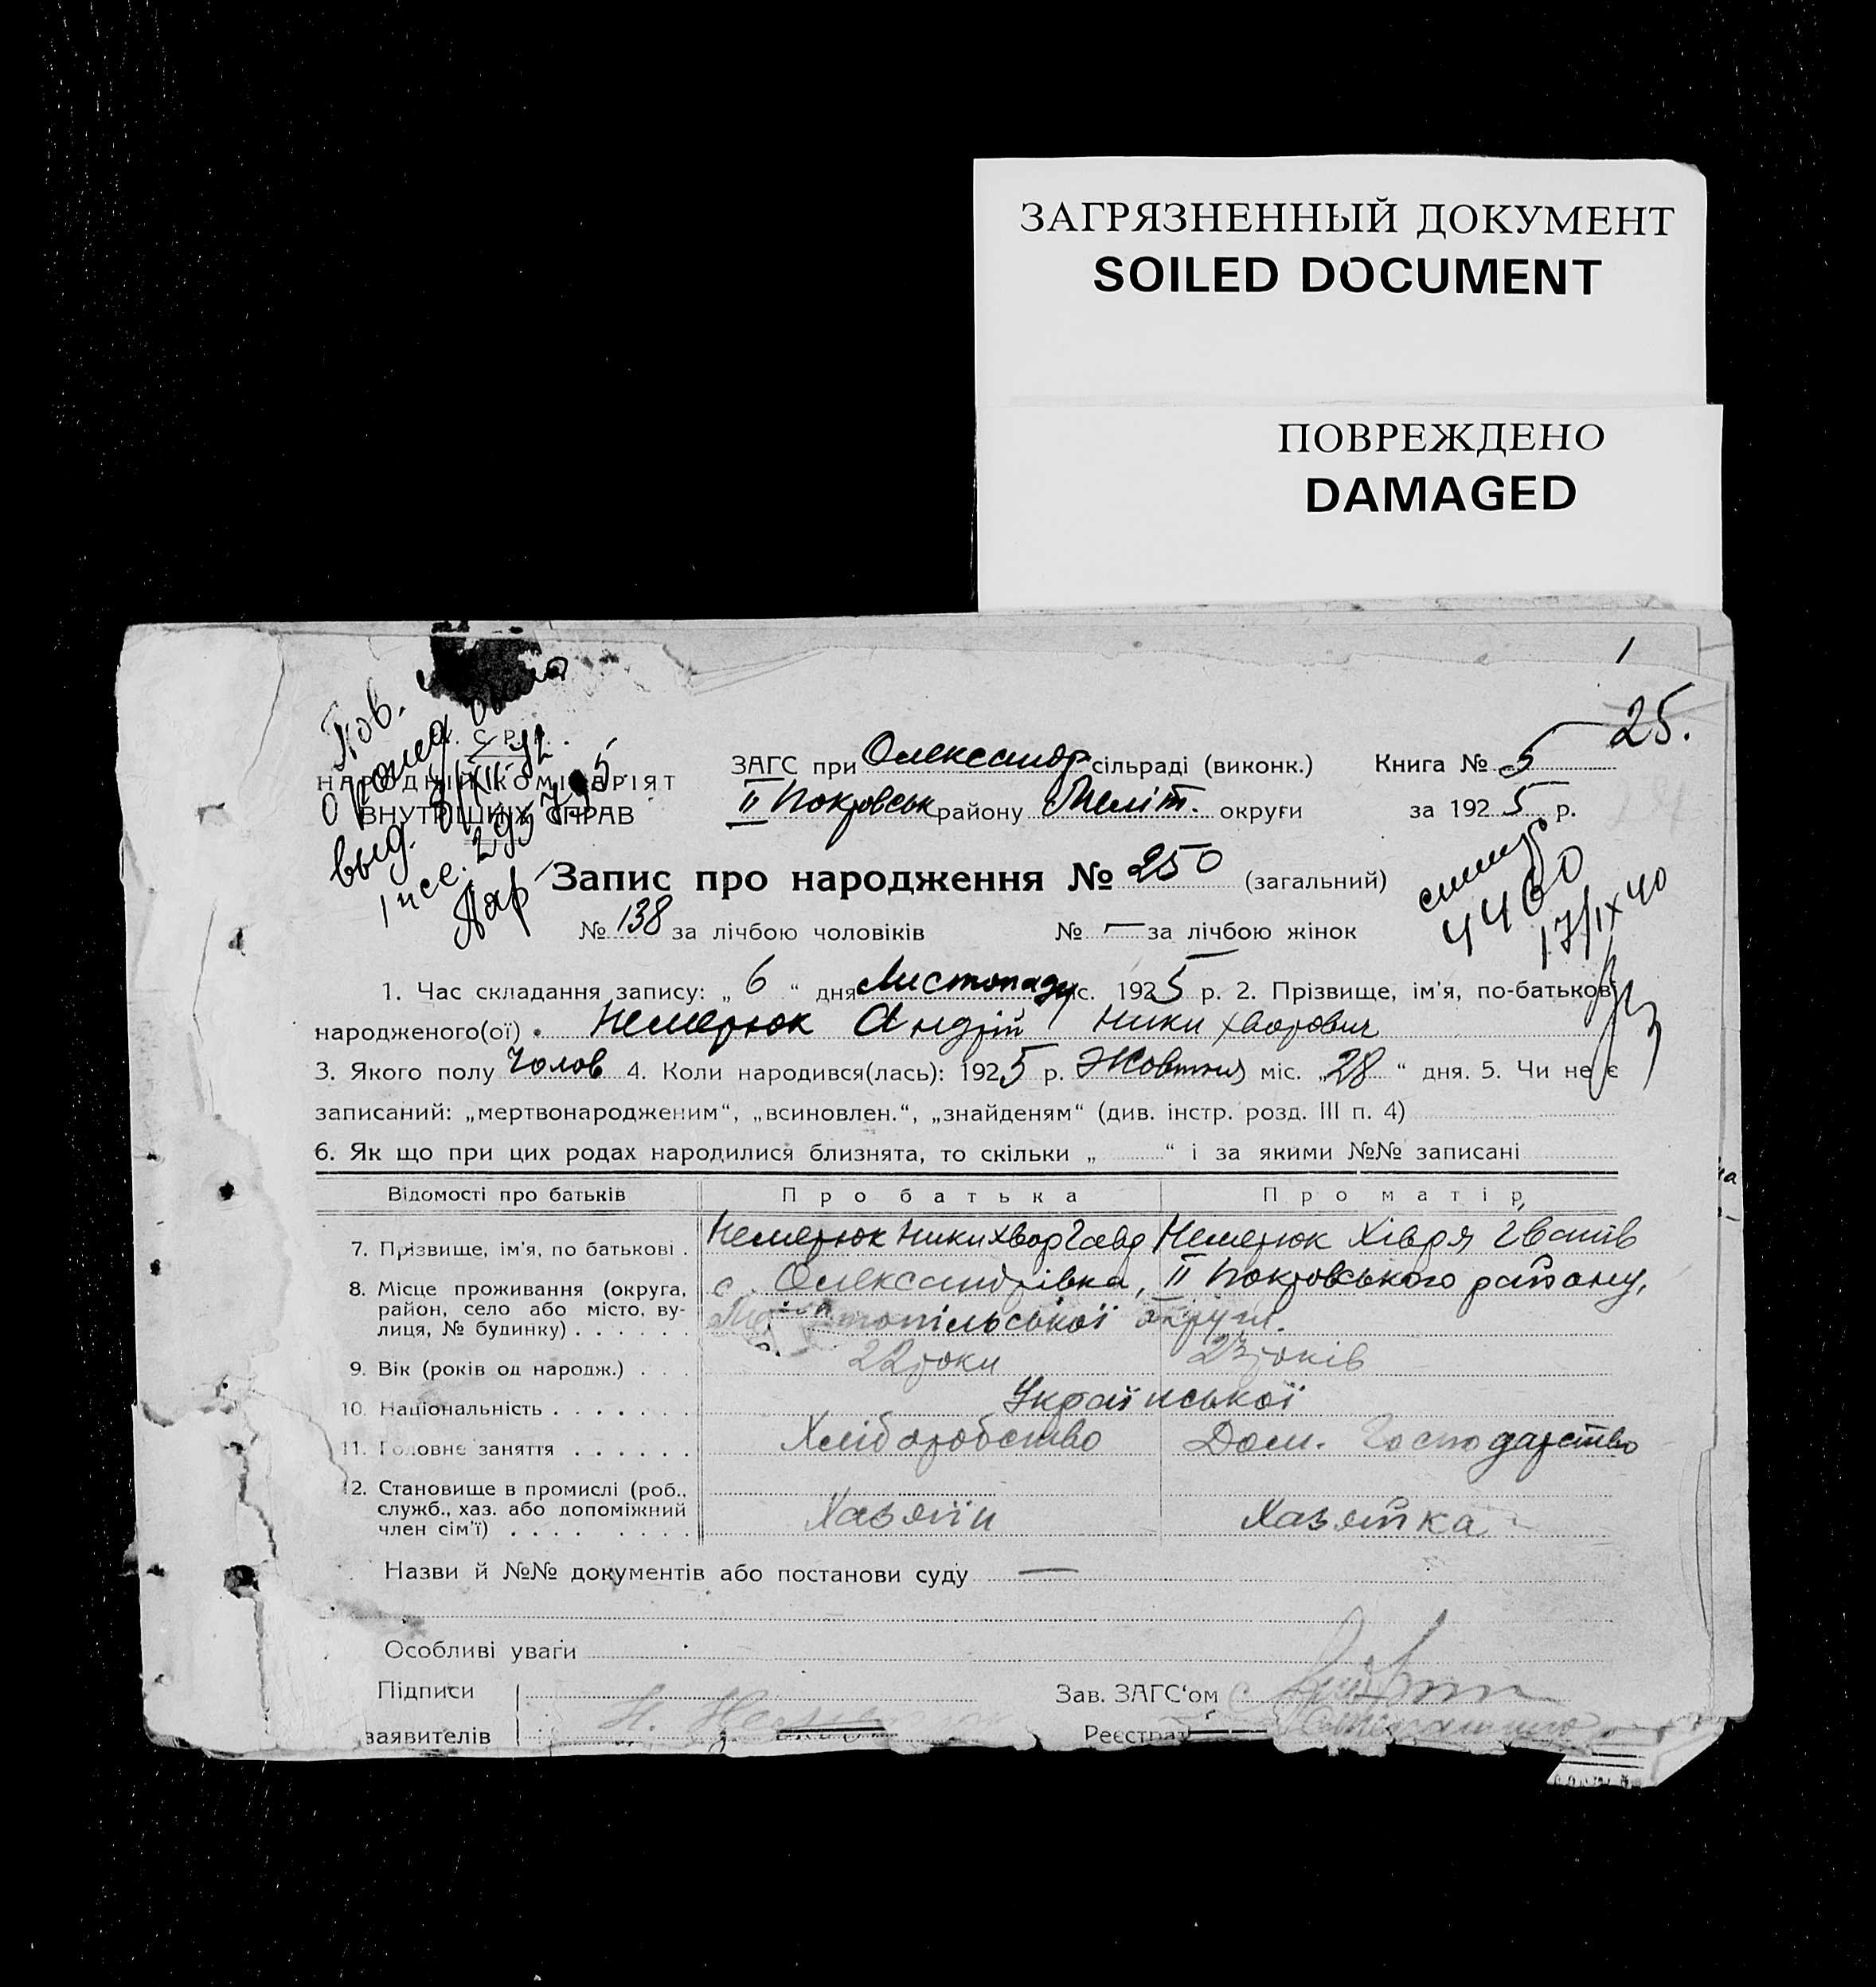 ЗАГРЯЗНЕННЫЙ ДОКУМЕНТ
SOILED DOCUMENT
ПОВРЕЖДЕНО
DAMAGED
1
25.
Пов.
о рожд.
выд.
НАРОДНІЙ КОМІСАРІЯТ
ВНУТРІШНІХ СПРАВ
ЗАГС при Олександр. сільраді (виконк.) Книга № 5
II Покровськ району Меліт. округи за 1925 р.
Запис про народження № 250 (загальний)
4460
17/IX 40
№ 138 за лічбою чоловіків № — за лічбою жінок
1. Час складання запису: „ 6 “ дня Листопаду с. 1925 р. 2. Прізвище, ім'я, по-батькові
народженого(ої) Немерюк Андрій Никихворович
3. Якого полу Чолов 4. Коли народився(лась): 1925 р. Жовтня міс. „28“ дня. 5. Чи не є
записаний: „мертвонародженим“, „всиновлен.“, „знайденям“ (див. інстр. розд. III п. 4)
6. Як що при цих родах народилися близнята, то скільки „ “ і за якими №№ записані
Відомості про батьків Про батька Про матір
7. Прізвище, ім'я, по батькові . Немерюк Никихвор Гавр Немерюк Хівря Гватів
8. Місце проживання (округа, район, село або місто, вулиця, № будинку) с. Олександрівка, II Покровського району,
Мелітопільської округи.
9. Вік (років од народж.) . . . 22 роки 23 років
10. Національність . . . . . . . Української
11. Головне заняття . . . . . . Хліборобство Дом. Господарство
12. Становище в промислі (роб., служб., хаз. або допоміжний член сім'ї) Хазяїн Хазяйка
Назви й №№ документів або постанови суду —
Особливі уваги
Підписи Зав. ЗАГС'ом
заявителів Н. Реєстрат